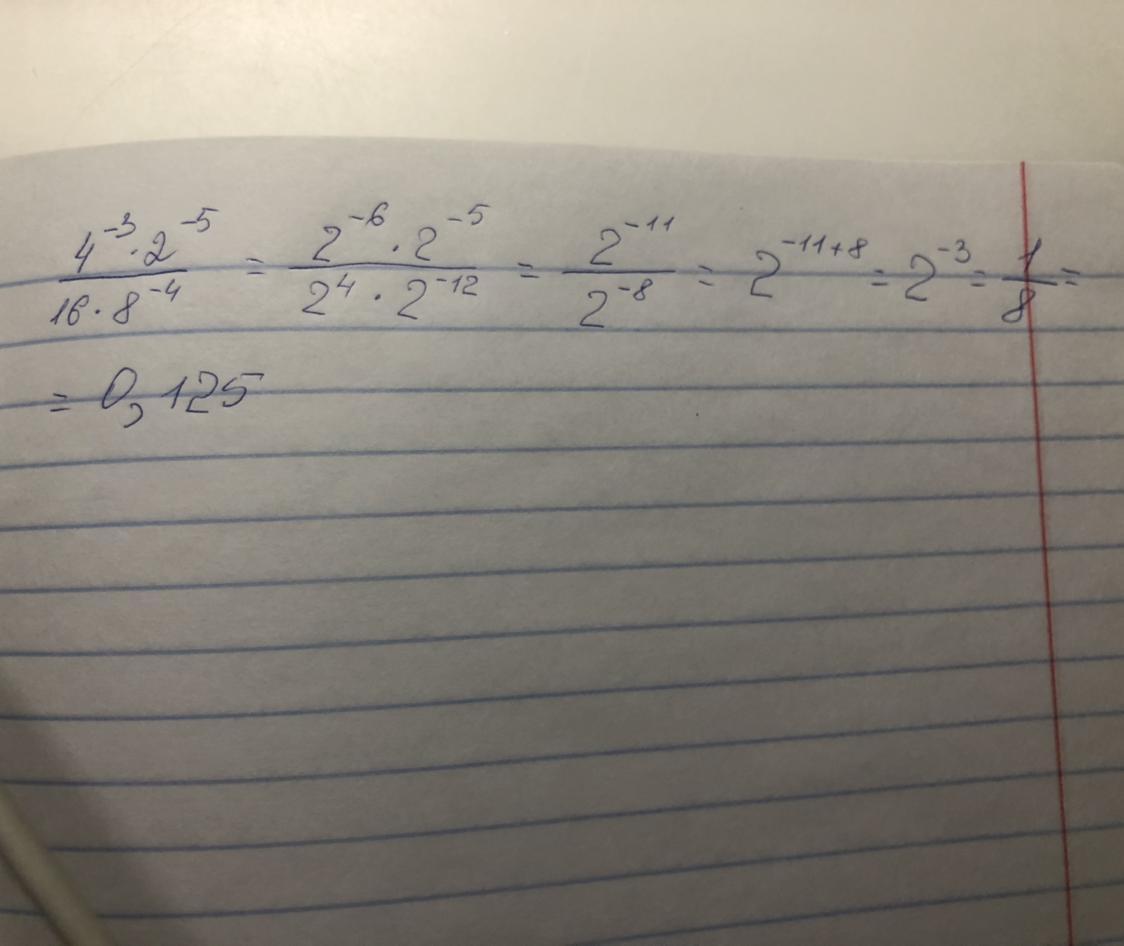 \frac{4^{-3} \cdot 2^{-5}}{16 \cdot 8^{-4}} = \frac{2^{-6} \cdot 2^{-5}}{2^{4} \cdot 2^{-12}} = \frac{2^{-11}}{2^{-8}} = 2^{-11+8} = 2^{-3} = \frac{1}{8} =
= 0,125